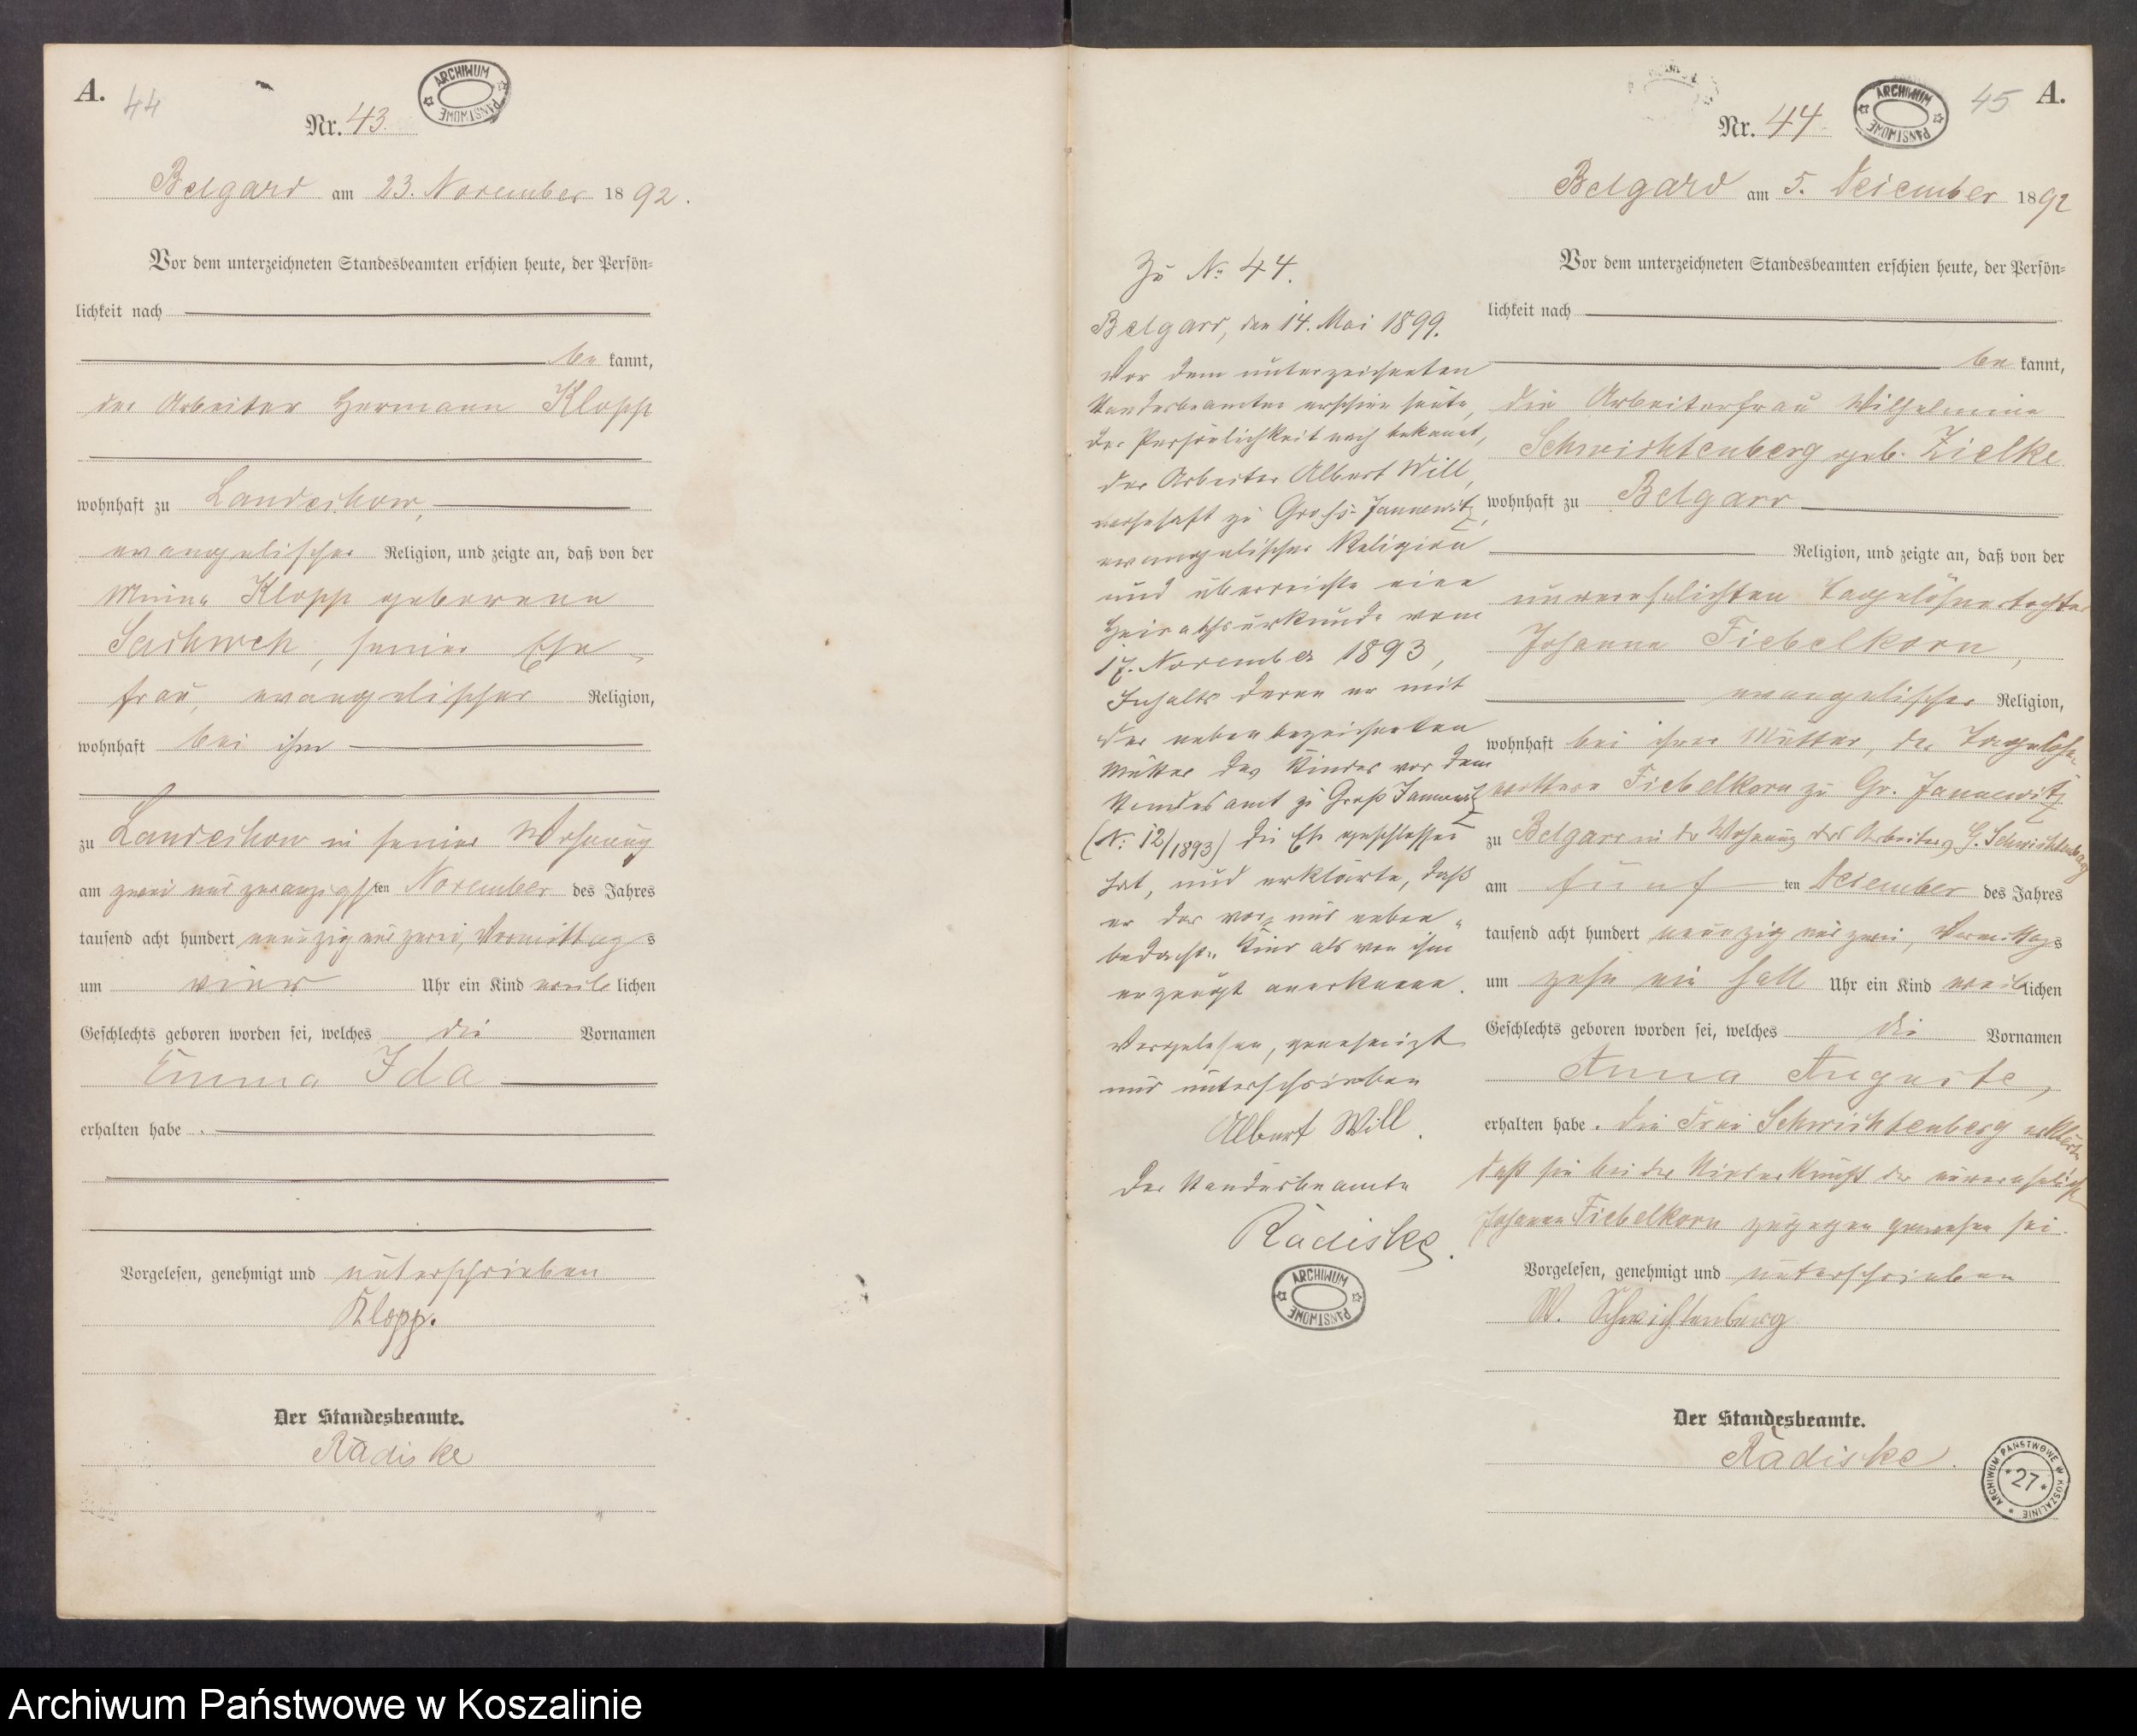 A.
44
ARCHIWUM PAŃSTWOWE
Nr. 43.
Belgard am 23. November 1892.
Vor dem unterzeichneten Standesbeamten erschien heute, der Persön-
lichkeit nach
be kannt,
der Arbeiter Hermann Klopp
wohnhaft zu Landechow,
evangelischer Religion, und zeigte an, daß von der
Minna Klopp geborene
Sachweh, seiner Ehe-
frau, evangelischer Religion,
wohnhaft bei ihm
zu Landechow in seiner Wohnung
am zwei und zwanzigsten November des Jahres
tausend acht hundert neunzig und zwei, Vormittags
um vier Uhr ein Kind weiblichen
Geschlechts geboren worden sei, welches die Vornamen
Emma Ida
erhalten habe.
Vorgelesen, genehmigt und unterschrieben
Klopp.
Der Standesbeamte.
Radiske
Zu No 44.
Belgard, den 14. Mai 1899.
Vor dem unterzeichneten
Standesbeamten erschien heute,
der Persönlichkeit nach bekannt,
der Arbeiter Albert Will,
wohnhaft zu Groß-Jannewitz,
evangelischer Religion
und überreichte eine
Heirathsurkunde vom
17. November 1893,
Inhalts deren er mit
der nebenbezeichneten
Mutter des Kindes vor dem
Standesamt zu Groß Jannewitz
(No 12/1893) die Ehe geschlossen
hat, und erklärte, daß
er das vor- und neben-
bedachte Kind als von ihm
erzeugt anerkenne.
Vorgelesen, genehmigt
und unterschrieben
Albert Will.
Der Standesbeamte
Radiske.
ARCHIWUM PAŃSTWOWE
45 A.
ARCHIWUM PAŃSTWOWE
Nr. 44.
Belgard am 5. Dezember 1892
Vor dem unterzeichneten Standesbeamten erschien heute, der Persön-
lichkeit nach
be kannt,
die Arbeiterfrau Wilhelmine
Schwichtenberg geb. Zielke
wohnhaft zu Belgard
Religion, und zeigte an, daß von der
unverehelichten Tagelöhnertochter
Johanna Fiebelkorn,
evangelischer Religion,
wohnhaft bei ihrer Mutter, der Tagelöhner
wittwe Fiebelkorn zu Gr. Jannewitz
zu Belgard in der Wohnung des Arbeiters G. Schwichtenberg
am fünf ten Dezember des Jahres
tausend acht hundert neunzig und zwei, Vormittags
um zehn ein halb Uhr ein Kind weiblichen
Geschlechts geboren worden sei, welches die Vornamen
Anna Auguste,
erhalten habe. Die Frau Schwichtenberg erklärte
daß sie bei der Niederkunft der unverehelichten
Johanna Fiebelkorn zugegen gewesen sei.
Vorgelesen, genehmigt und unterschrieben
W. Schwichtenberg
Der Standesbeamte.
Radiske.
ARCHIWUM PAŃSTWOWE W KOSZALINIE
*27*
Archiwum Państwowe w Koszalinie